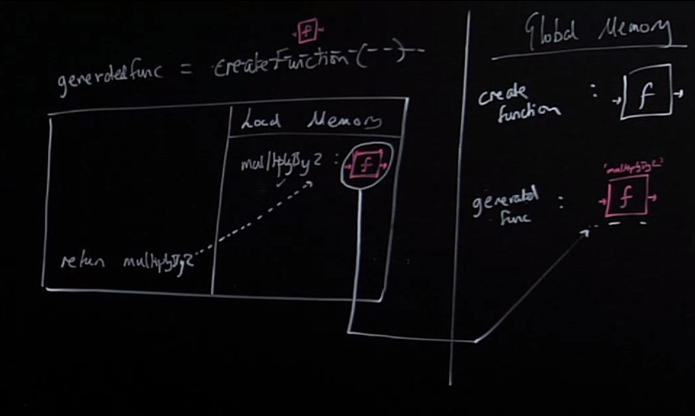 f
generatedfunc = createFunction(--)--
Local Memory
multiplyBy2 : f
return multiplyBy2
Global Memory
create function : f
'multiplyBy2'
generated func : f